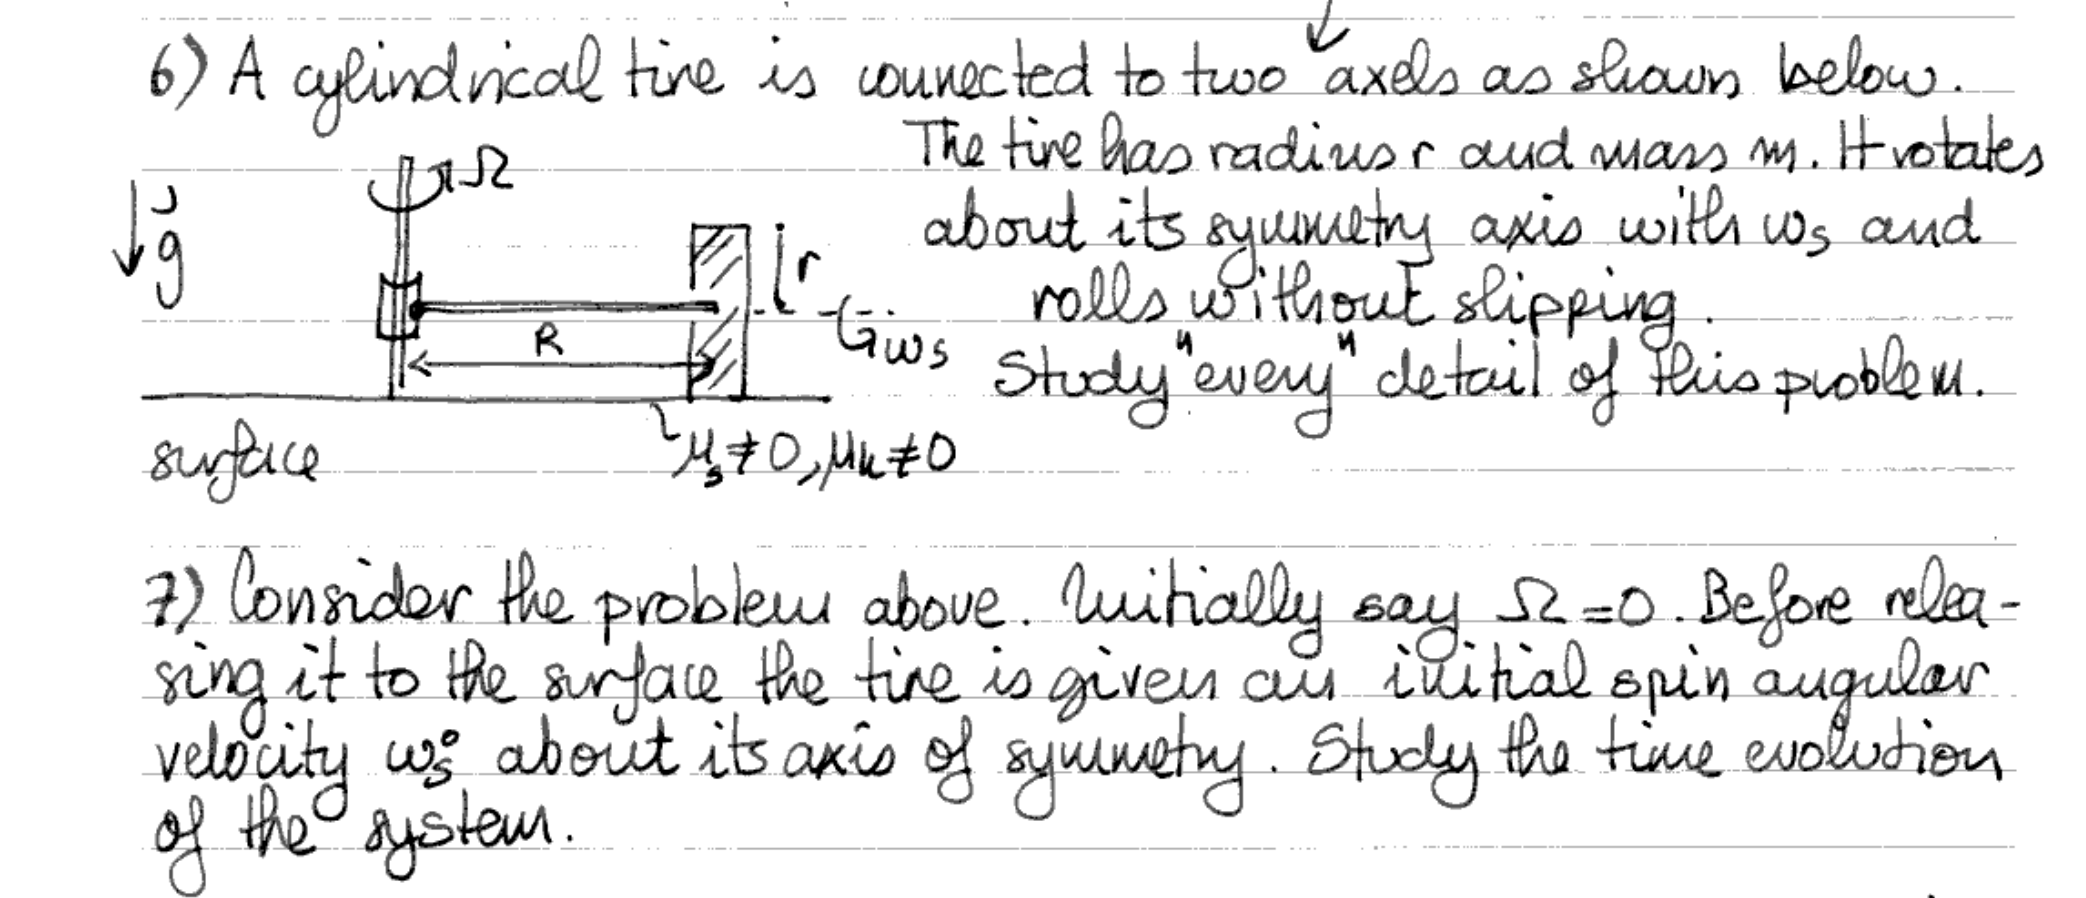 6) A cylindrical tire is connected to two axels as shown below.
The tire has radius r and mass m. It rotates
Ω
g
about its symmetry axis with ωs and
r
rolls without slipping.
R
ωs
Study "every" detail of this problem.
surface
μs≠0, μk≠0
7) Consider the problem above. Initially say Ω=0. Before relea-
sing it to the surface the tire is given an initial spin angular
velocity ωs° about its axis of symmetry. Study the time evolution
of the system.